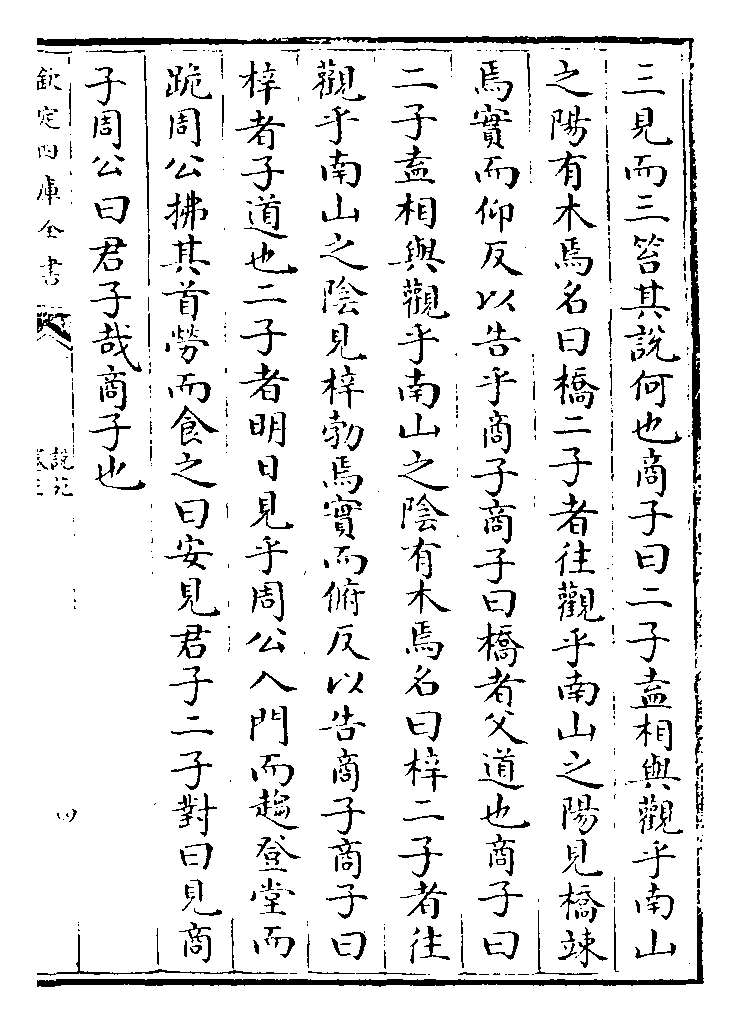 三見而三笞其說何也商子曰二子盍相與觀乎南山
之陽有木焉名曰橋二子者往觀乎南山之陽見橋竦
焉實而仰反以告乎商子商子曰橋者父道也商子曰
二子盍相與觀乎南山之陰有木焉名曰梓二子者往
觀乎南山之陰見梓勃焉實而俯反以告商子商子曰
梓者子道也二子者明日見乎周公入門而趨登堂而
跪周公拂其首勞而食之曰安見君子二子對曰見商
子周公曰君子哉商子也
欽定四庫全書
說苑
四